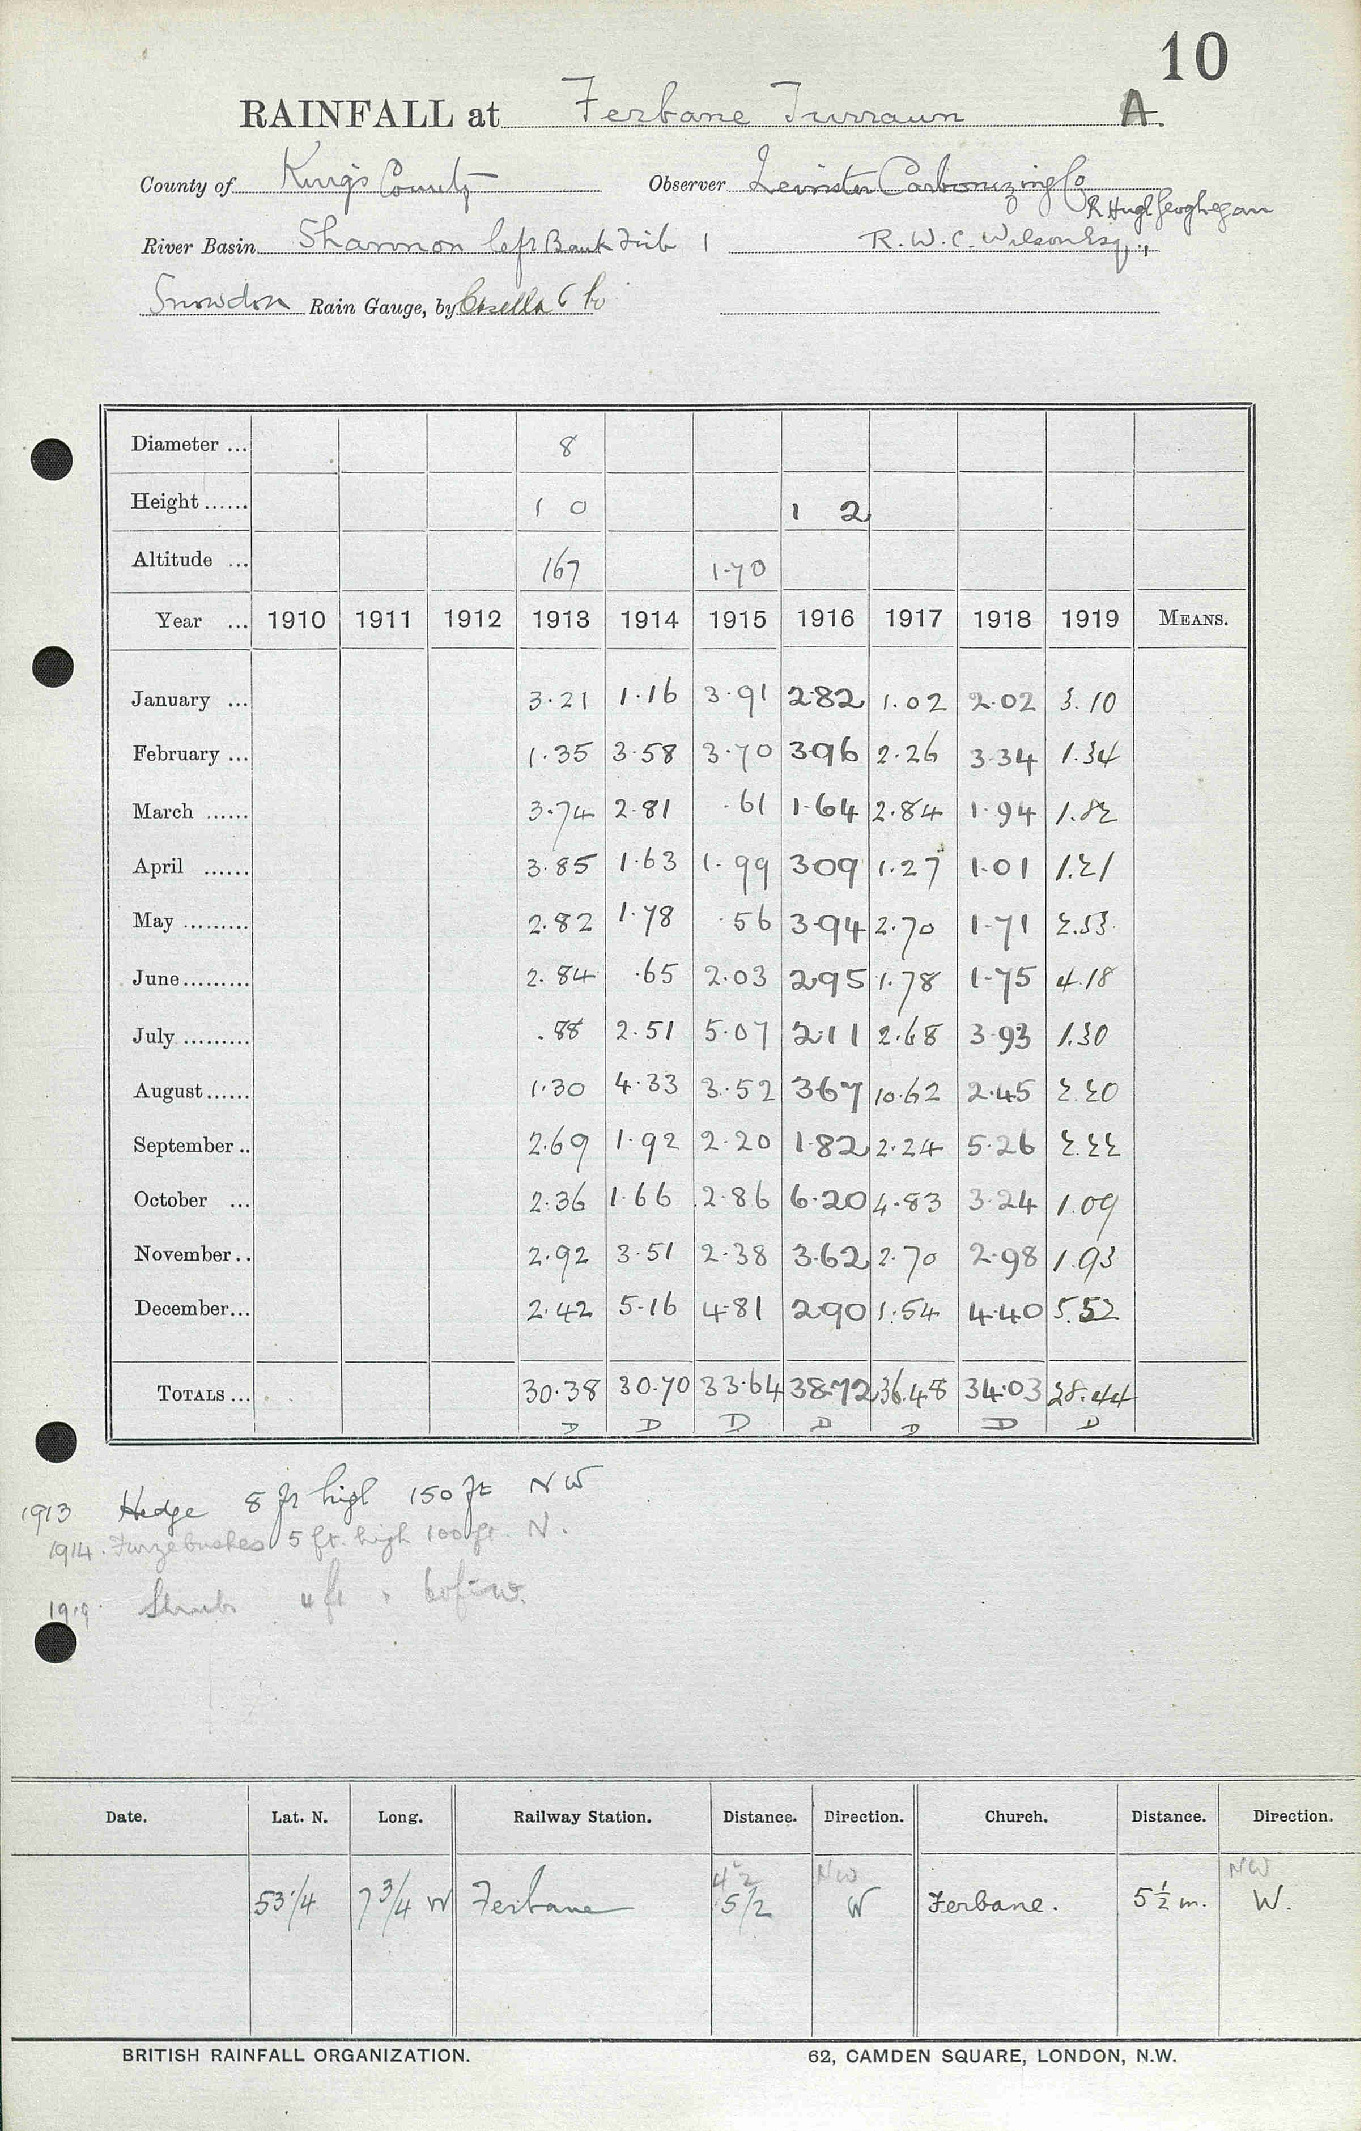 10
RAINFALL at Ferbane Turraun A.
County of King's County Observer Leinster Carbonizing Co
R Hugh Geoghegan
River Basin Shannon left Bank Trib 1 R. W. C. Wilson Esq.,
Snowdon Rain Gauge, by Casella & Co
Diameter ... 8
Height ...... 1 0 1 2
Altitude ... 167 170
Year ... 1910 1911 1912 1913 1914 1915 1916 1917 1918 1919 MEANS.
January ... 3.21 1.16 3.91 2.82 1.02 2.02 3.10
February ... 1.35 3.58 3.70 3.96 2.26 3.34 1.34
March ...... 3.74 2.81 .61 1.64 2.84 1.94 1.82
April ...... 3.85 1.63 1.99 3.09 1.27 1.01 1.21
May ......... 2.82 1.78 .56 3.94 2.70 1.71 2.53
June ......... 2.84 .65 2.03 2.95 1.78 1.75 4.18
July ......... .88 2.51 5.07 2.11 2.68 3.93 1.30
August ...... 1.30 4.33 3.52 3.67 10.62 2.45 2.20
September .. 2.69 1.92 2.20 1.82 2.24 5.26 2.22
October ... 2.36 1.66 2.86 6.20 4.83 3.24 1.09
November .. 2.92 3.51 2.38 3.62 2.70 2.98 1.93
December ... 2.42 5.16 4.81 2.90 1.54 4.40 5.52
TOTALS ... 30.38 30.70 33.64 38.72 36.48 34.03 28.44
D D D D D D D
1913 Hedge 8 ft high 150 ft NW
1914. Furze bushes 5 ft. high 100 ft. N.
1919. Shrubs 4 ft " 60 ft
Date. Lat. N. Long. Railway Station. Distance. Direction. Church. Distance. Direction.
4½ NW NW
53¼ 7¾ W Ferbane 5½ W Ferbane. 5½ m. W.
BRITISH RAINFALL ORGANIZATION. 62, CAMDEN SQUARE, LONDON, N.W.